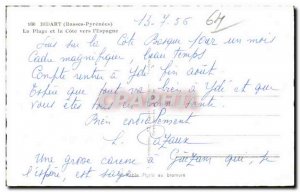 160 BIDART (Basses-Pyrénées)
La Plage et la Côte vers l'Espagne
13.7.56 64
Suis sur la Côte Basque pour un mois
Cadre magnifique, beau temps
Compte rentrer à fin août
Espère que tout va bien à et que
vous êtes tous en bonne santé.
Bien cordialement
Une grosse caresse à que, je
l'espère, est